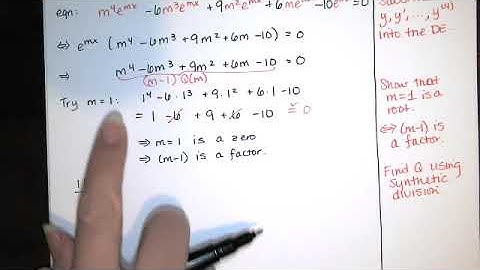 eqn: m⁴eᵐˣ -6m³eᵐˣ + 9m²eᵐˣ + 6meᵐˣ -10eᵐˣ = 0
⇔ eᵐˣ (m⁴ -6m³ + 9m² + 6m -10) = 0
⇔ m⁴ -6m³ + 9m² + 6m -10 = 0
(m-1) Q(m)
Try m=1: 1⁴ -6·1³ + 9·1² + 6·1 -10
= 1 -6 + 9 +6 -10 ≚ 0
⇒ m=1 is a zero
⇒ (m-1) is a factor.
1
y, y', ..., y⁽⁴⁾
into the DE.
Show that
m=1 is a
root.
⇔ (m-1) is
a factor.
Find Q using
synthetic
division